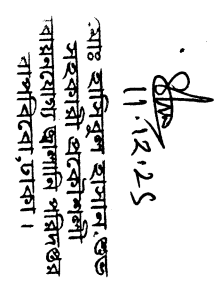 11.12.25
মোঃ হাসিবুল হাসান শুভ
সহকারী প্রকৌশলী
নবায়নযোগ্য জ্বালানি পরিদপ্তর
বাপবিবো, ঢাকা।